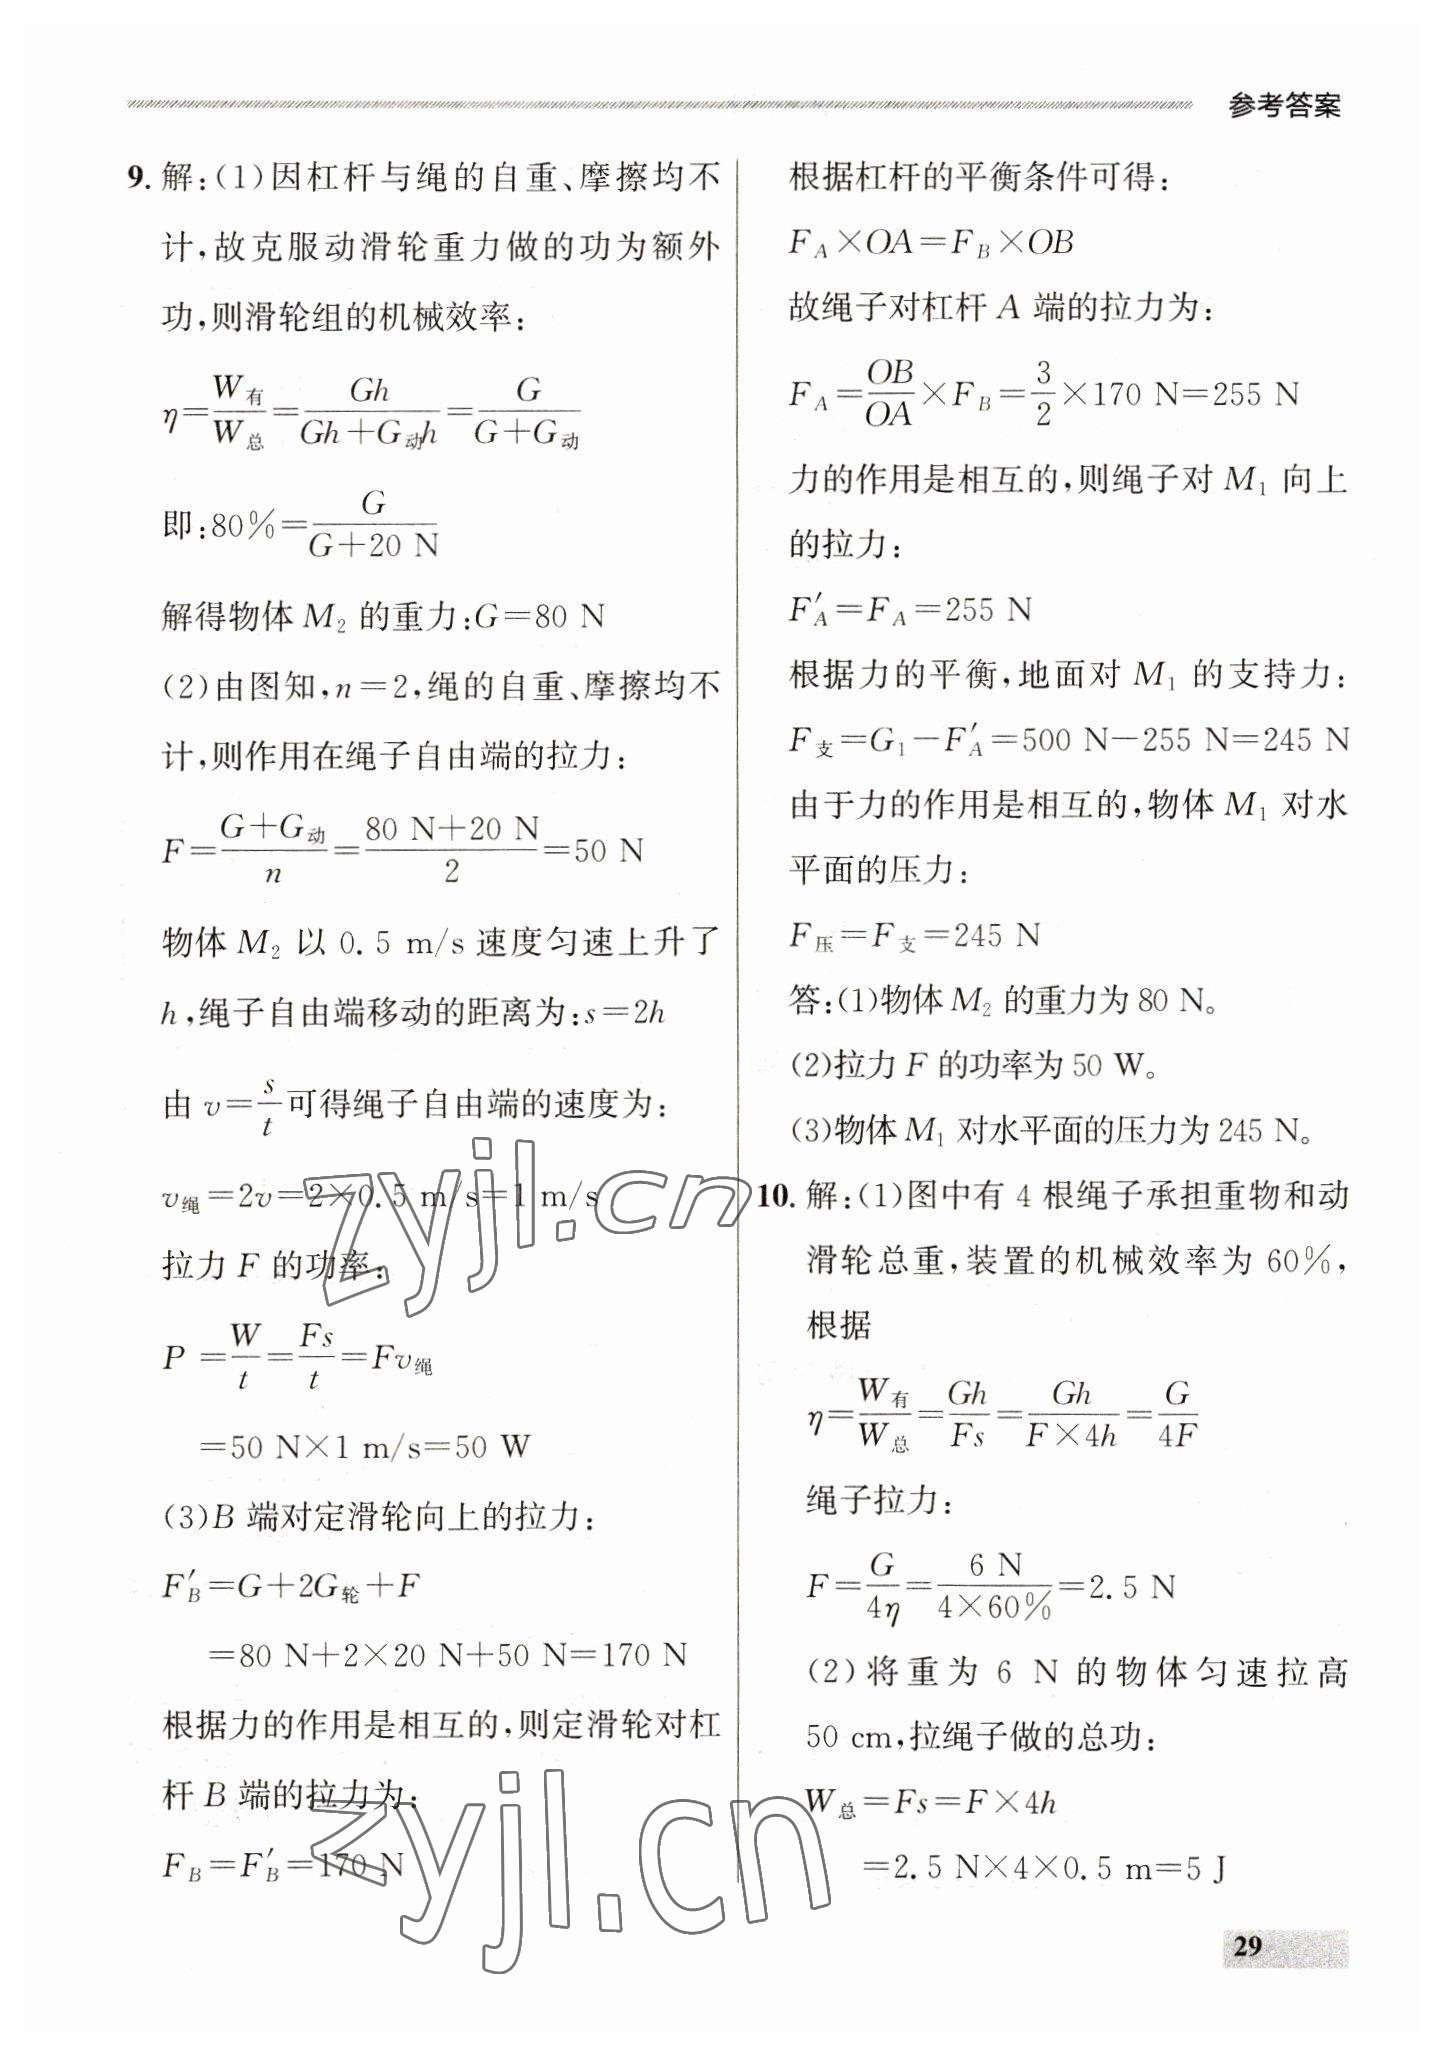 参考答案
9. 解:(1)因杠杆与绳的自重、摩擦均不
计,故克服动滑轮重力做的功为额外
功,则滑轮组的机械效率:
η=W有/W总=Gh/(Gh+G动h)=G/(G+G动)
即:80%=G/(G+20 N)
解得物体 M₂ 的重力:G=80 N
(2)由图知,n=2,绳的自重、摩擦均不
计,则作用在绳子自由端的拉力:
F=(G+G动)/n=(80 N+20 N)/2=50 N
物体 M₂ 以 0.5 m/s 速度匀速上升了
h,绳子自由端移动的距离为:s=2h
由 v=s/t可得绳子自由端的速度为:
v绳=2v=2×0.5 m/s=1 m/s
拉力 F 的功率:
P=W/t=Fs/t=Fv绳
=50 N×1 m/s=50 W
(3)B 端对定滑轮向上的拉力:
F′B=G+2G轮+F
=80 N+2×20 N+50 N=170 N
根据力的作用是相互的,则定滑轮对杠
杆 B 端的拉力为:
FB=F′B=170 N
根据杠杆的平衡条件可得:
FA×OA=FB×OB
故绳子对杠杆 A 端的拉力为:
FA=OB/OA×FB=3/2×170 N=255 N
力的作用是相互的,则绳子对 M₁ 向上
的拉力:
F′A=FA=255 N
根据力的平衡,地面对 M₁ 的支持力:
F支=G₁-F′A=500 N-255 N=245 N
由于力的作用是相互的,物体 M₁ 对水
平面的压力:
F压=F支=245 N
答:(1)物体 M₂ 的重力为 80 N。
(2)拉力 F 的功率为 50 W。
(3)物体 M₁ 对水平面的压力为 245 N。
10. 解:(1)图中有 4 根绳子承担重物和动
滑轮总重,装置的机械效率为 60%,
根据
η=W有/W总=Gh/Fs=Gh/(F×4h)=G/4F
绳子拉力:
F=G/4η=6 N/(4×60%)=2.5 N
(2)将重为 6 N 的物体匀速拉高
50 cm,拉绳子做的总功:
W总=Fs=F×4h
=2.5 N×4×0.5 m=5 J
29
zyjl.cn
zyjl.cn